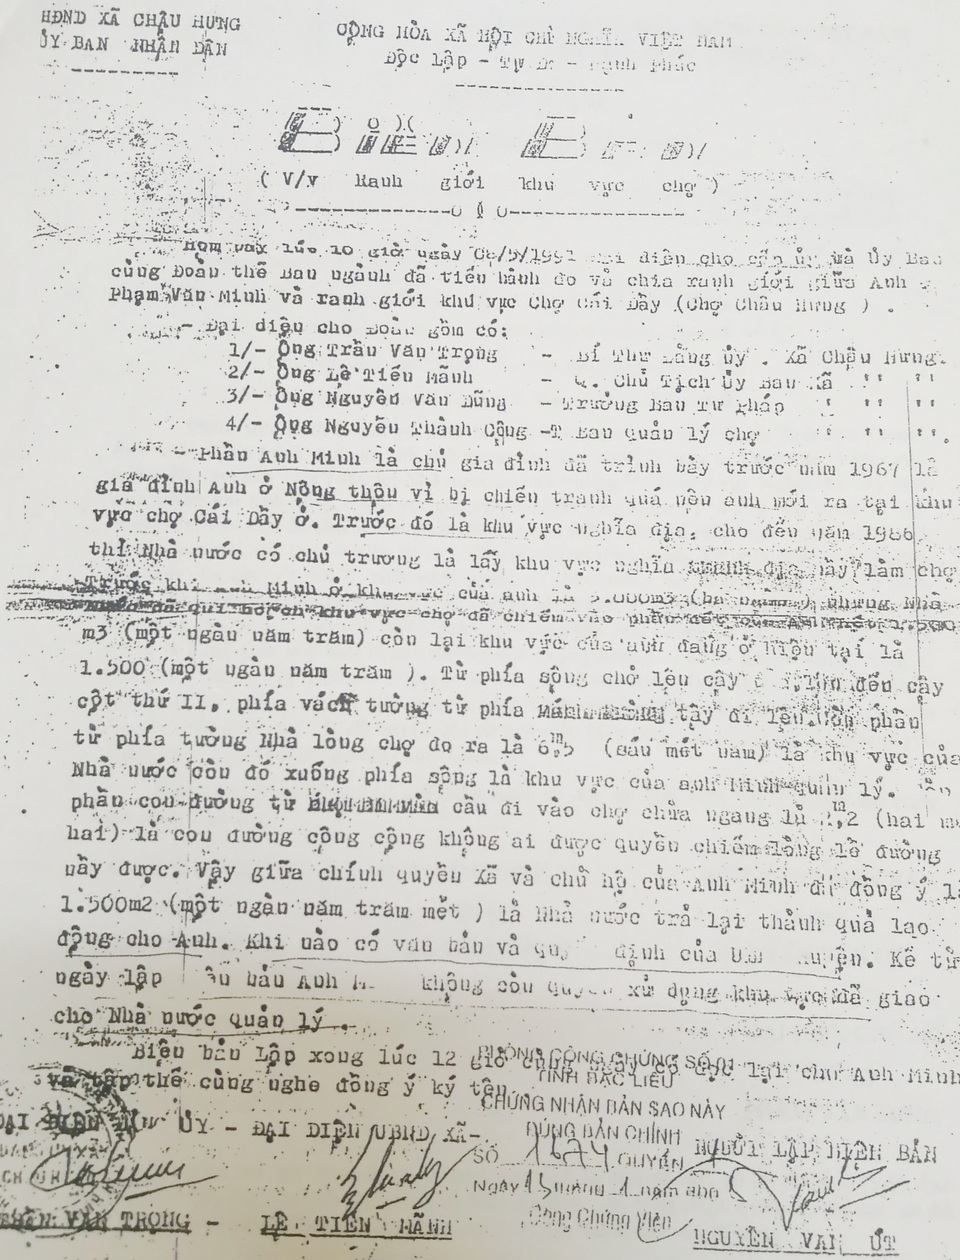 HĐND XÃ CHÂU HƯNG
ỦY BAN NHÂN DÂN
CỘNG HÒA XÃ HỘI CHỦ NGHĨA VIỆT NAM
Độc Lập - Tự Do - Hạnh Phúc
Biên Bản
( V/v Ranh giới khu vực chợ )
Hôm nay lúc 10 giờ ngày 08/5/1991 đại diện cho cấp ủy và Ủy Ban
cùng Đoàn thể Ban ngành đã tiến hành đo và chia ranh giới giữa Anh
Phạm Văn Minh và ranh giới khu vực Chợ Cái Dầy (Chợ Châu Hưng ) .
- Đại diện cho Đoàn gồm có:
1/- Ông Trần Văn Trọng - Bí Thư Đảng ủy . Xã Châu Hưng.
2/- Ông Lê Tiến Mãnh - Q. Chủ Tịch Ủy Ban Xã " "
3/- Ông Nguyễn Văn Dũng - Trưởng Ban Tư Pháp " " "
4/- Ông Nguyễn Thành Công -T Ban quản lý chợ " " ".
- Phần Anh Minh là chủ gia đình đã trình bày trước năm 1967 là
gia đình Anh ở Nông thôn vì bị chiến tranh quá nên anh mới ra tại khu
vực chợ Cái Dầy ở. Trước đó là khu vực nghĩa địa, cho đến năm 1986
thì Nhà nước có chủ trương là lấy khu vực nghĩa địa này làm chợ
Trước khi Anh Minh ở khu vực của anh là 3.000m3 (ba ngàn ) nhưng Nhà
nước đã qui hoạch khu vực chợ đã chiếm vào phần đất của Anh hết 1.500
m3 (một ngàn năm trăm) còn lại khu vực của anh đang ở hiện tại là
1.500 (một ngàn năm trăm ). Từ phía sông chợ lên cây đến cây
cột thứ II, phía vách tường từ phía tây đi lên phần
từ phía tường Nhà lồng chợ đo ra là 6m5 (sáu mét năm) là khu vực của
Nhà nước còn đổ xuống phía sông là khu vực của anh Minh quản lý.
phần con đường từ cầu đi vào chợ chừa ngang là 2m2 (hai mét
hai) là con đường công cộng không ai được quyền chiếm lòng lề đường
nầy được. Vậy giữa chính quyền Xã và chủ hộ của Anh Minh đã đồng ý là
1.500m2 (một ngàn năm trăm mét ) là Nhà nước trả lại thành quả lao
động cho Anh. Khi nào có văn bản và quyết định của huyện. Kể từ
ngày lập bản Anh không còn quyền xử dụng khu vực đã giao
cho Nhà nước quản lý .
Biên bản Lập xong lúc 12 giờ cùng ngày có đọc lại cho Anh Minh
và tập thể cùng nghe đồng ý ký tên.
PHÒNG CÔNG CHỨNG SỐ 01
TỈNH BẠC LIÊU
CHỨNG NHẬN BẢN SAO NÀY
ĐÚNG BẢN CHÍNH
SỐ 1674 QUYỂN
Công Chứng Viên
ĐẠI DIỆN ỦY - ĐẠI DIỆN UBND XÃ-
NGƯỜI LẬP BIÊN BẢN
TRẦN VĂN TRỌNG - LÊ TIẾN MÃNH
NGUYỄN VĂN ÚT